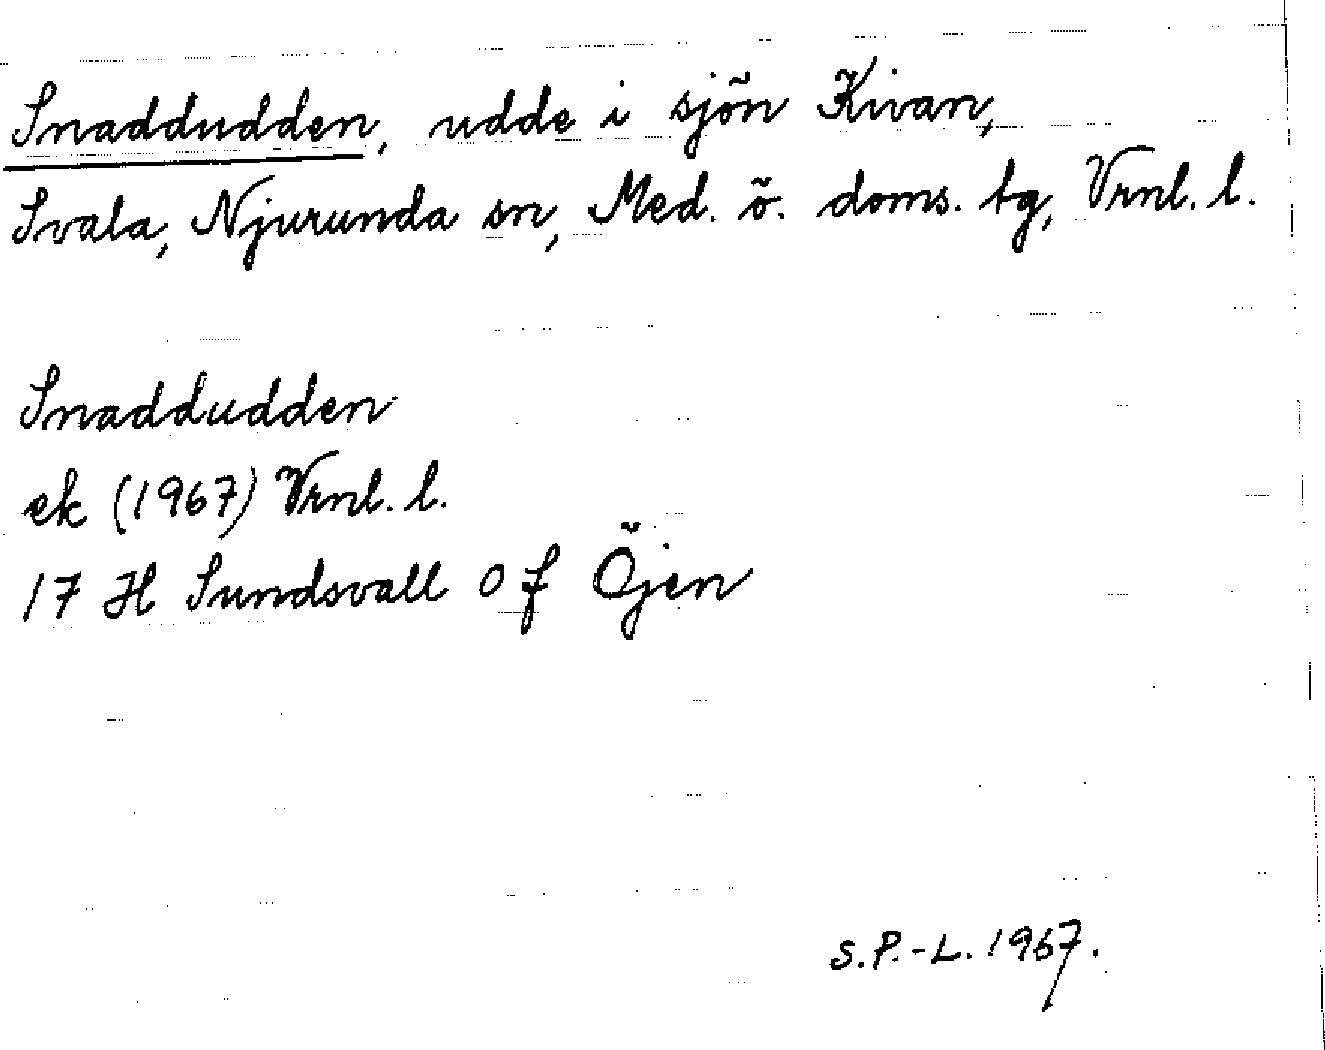 Snaddudden, udde i sjön Kivan,
Svala, Njurunda sn, Med. ö. doms. tg, Vrnl. l.
Snaddudden
ek (1967) Vrnl. l.
17 H Sundsvall 0 f Öjen
S.P.-L. 1967.